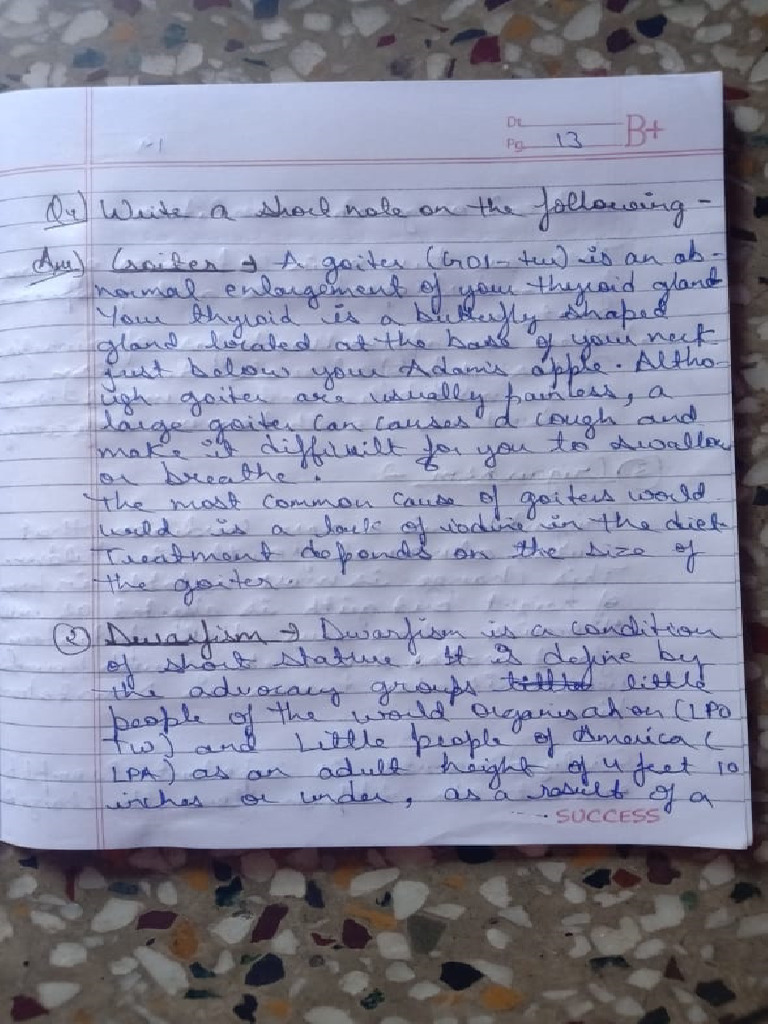 Dt.
Pg. 13 B+
Q4) Write a short note on the following -
Ans) Goiter → A goiter (GOI-tur) is an ab-
normal enlargement of your thyroid gland
Your thyroid is a butterfly shaped
gland located at the base of your neck
just below your Adam's apple. Altho-
ugh goiter are usually painless, a
large goiter can causes a cough and
make it difficult for you to swallow
or breathe.
The most common cause of goiters world
is a lack of iodine in the diet
Treatment depends on the size of
the goiter.
② Dwarfism → Dwarfism is a condition
of short stature. It is define by
the advocacy groups little
people of the world Organisation (LPO
TW) and Little people of America (
LPA) as an adult height of 4 feet 10
inches or under, as a result of a
SUCCESS